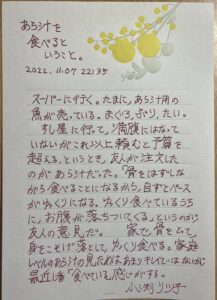 あら汁を
食べると
いうこと。
2022.11.07 22:35
スーパーに行く。たまに、あら汁用の
魚が売っている。まぐろ、ぶり、たい。
すし屋に行って、「満腹にはなって
いないがこれ以上頼むと予算を
超える」というとき、友人が注文した
のがあら汁だった。「骨をはずしな
がら食べることになるから、自ずとペース
がゆっくりになる。ゆっくり食べているうち
に、お腹が落ちついてくる」というのが
友人の意見だ。 家でも骨をとって、
身をこそげ落として、ゆっくり食べる。家庭
レベルのあら汁の見た目はあまりキレイではないが
最近1番「食べている」感じがする。
小渕リツ子